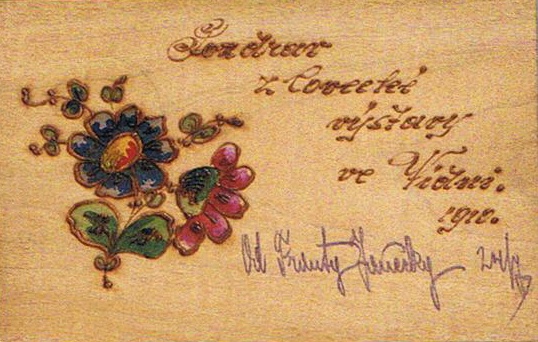 Pozdrav
z lovecké
výstavy
ve Vídni.
1910.
Od Franty